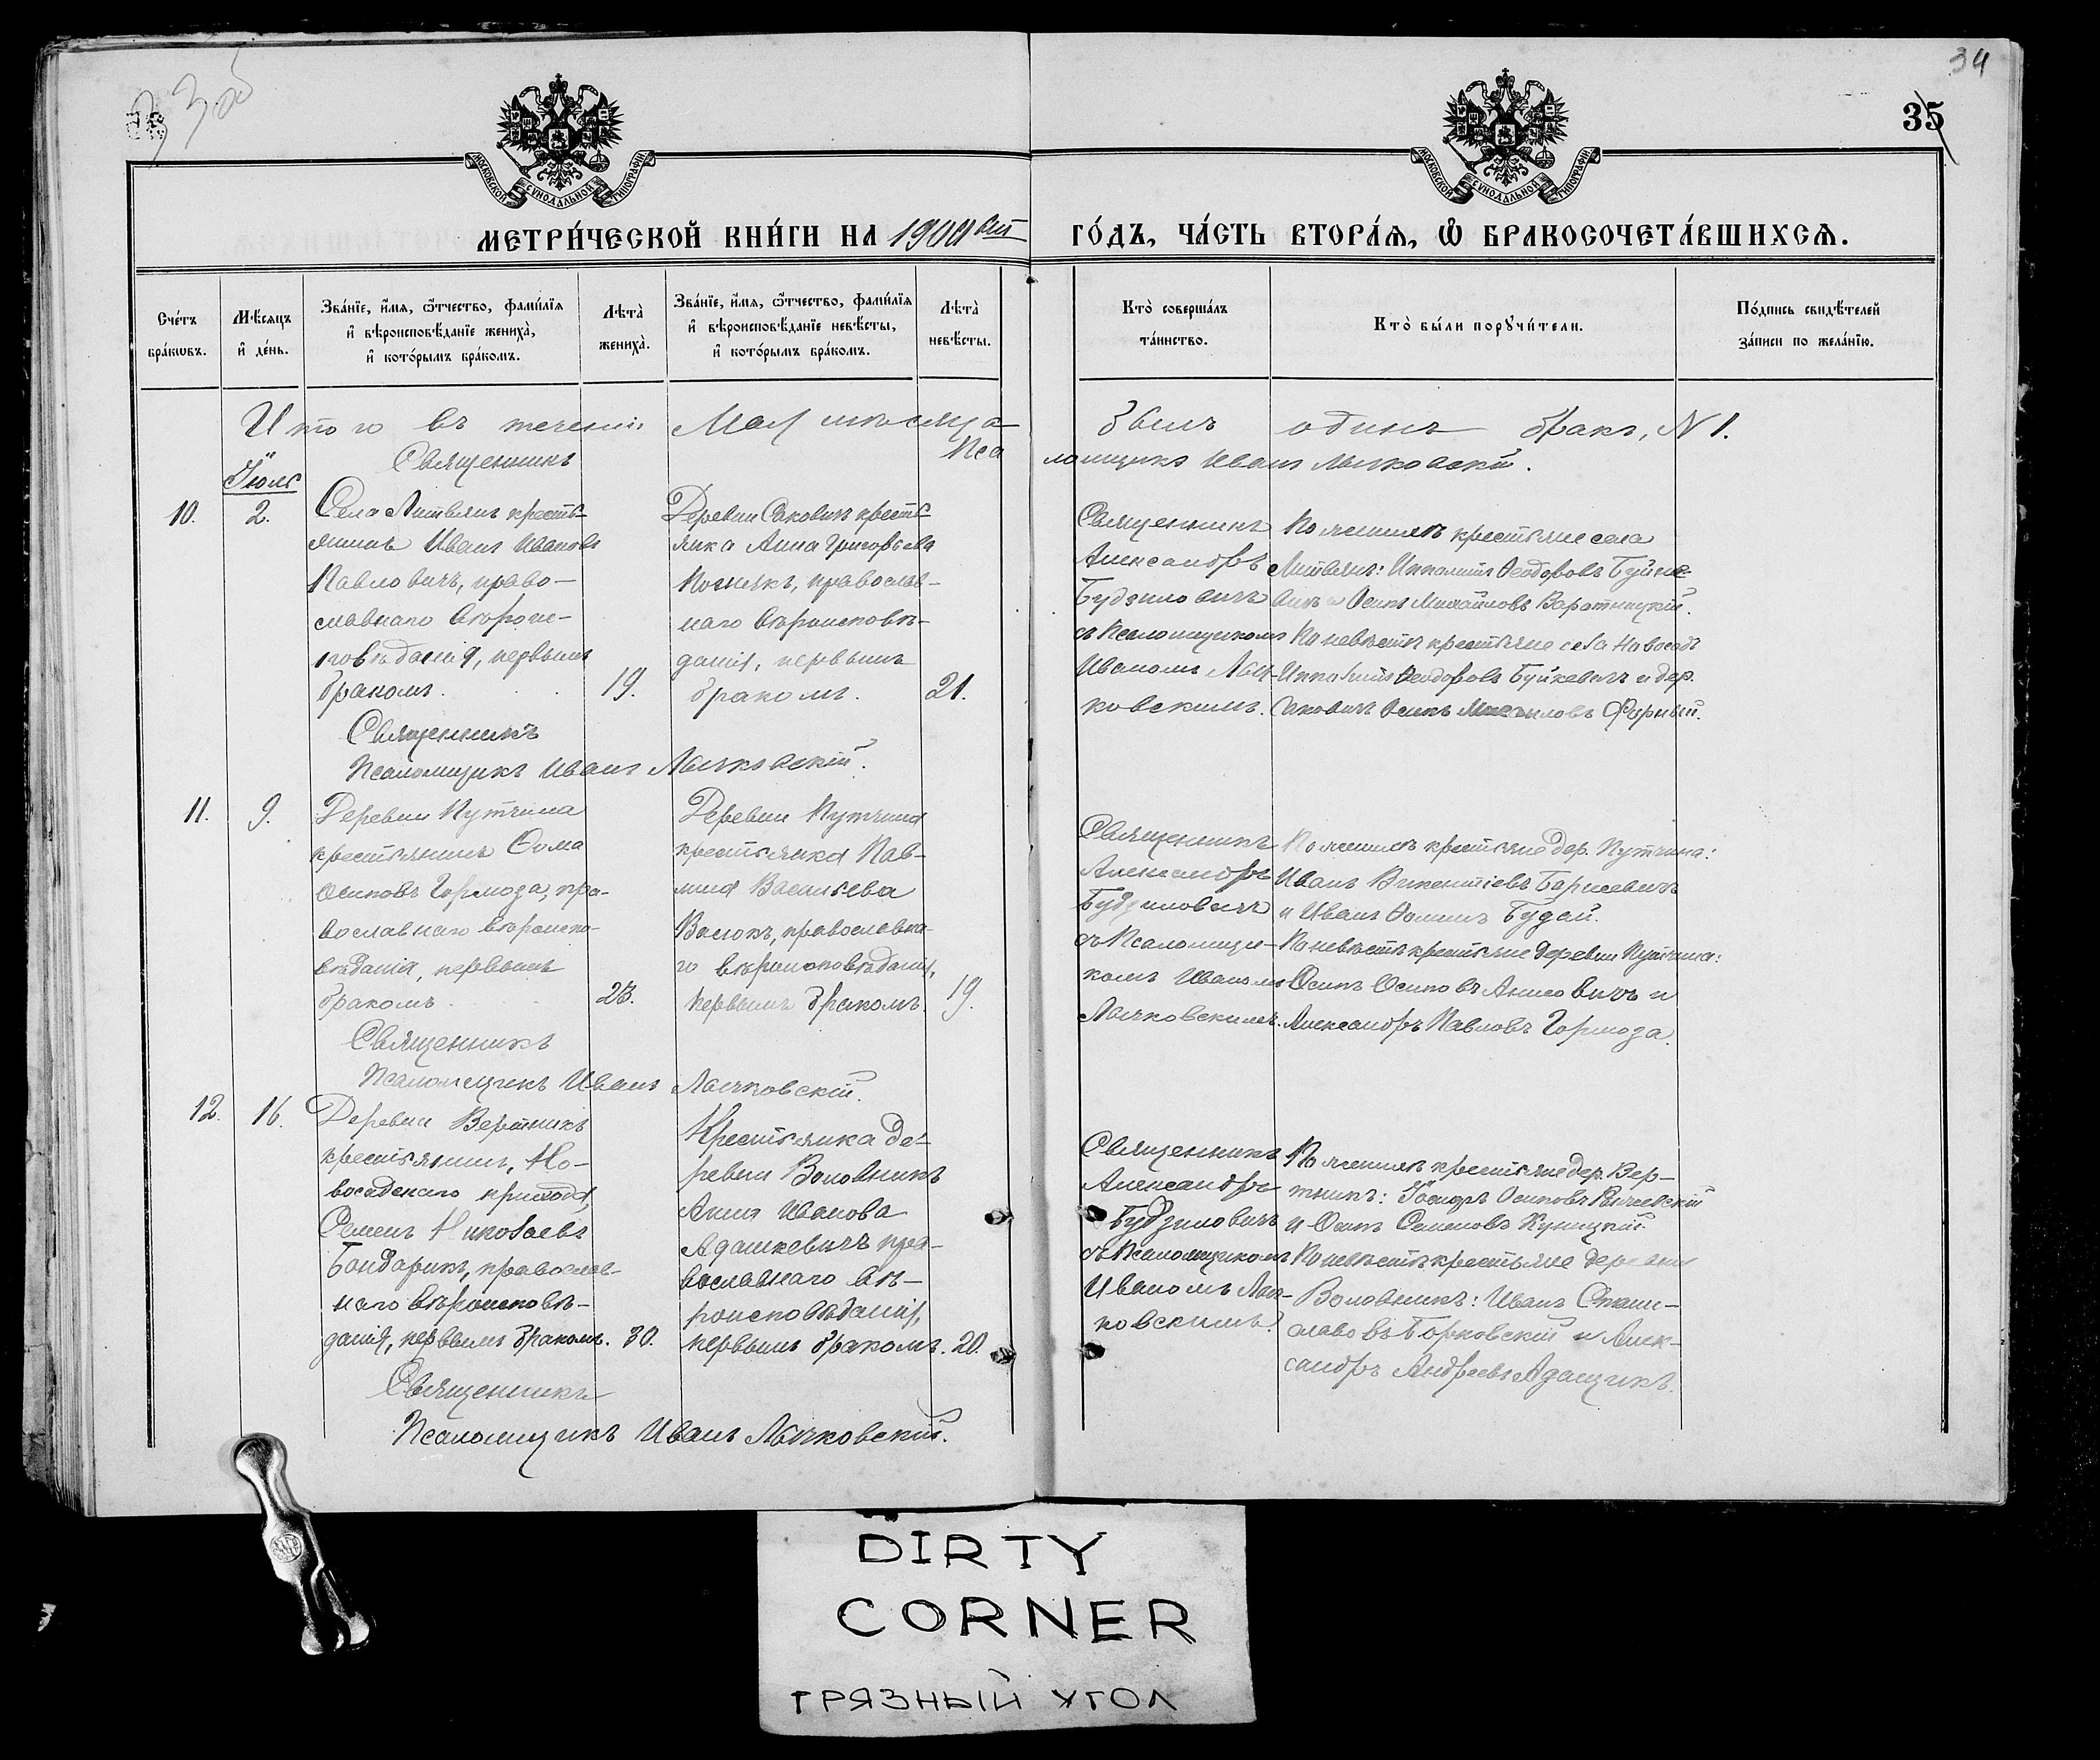 34
35
МОСКОВСКОЙ СУНОДАЛЬНОЙ ТИПОГРАФІИ
МОСКОВСКОЙ СУНОДАЛЬНОЙ ТИПОГРАФІИ
МЕТРИ́ЧЕСКОЙ КНИ́ГИ НА 1900ый
ГО́ДЪ, ЧА́СТЬ ВТОРА́Ѧ, Ѽ БРАКОСОЧЕТА́ВШИХСѦ.
Сче́тъ бра́кѡвъ.
Мѣ́сѧцъ и҆ де́нь.
Зва́нїе, и҆́мѧ, ѻ҆́тчество, фами́лїѧ
и҆ вѣроисповѣ́данїе жениха̀,
и҆ кото́рымъ бра́комъ.
Лѣта̀ жениха̀.
Зва́нїе, и҆́мѧ, ѻ҆́тчество, фами́лїѧ
и҆ вѣроисповѣ́данїе невѣ́сты,
и҆ кото́рымъ бра́комъ.
Лѣта̀ невѣ́сты.
Кто̀ соверша́лъ та́инство.
Кто̀ бы́ли порꙋчи́тели.
По́дпись свидѣ́телей за́писи по жела́нїю.
Итого въ теченіи Мая мѣсяца былъ одинъ бракъ, N 1.
Священникъ
Псаломщикъ Иванъ Лычковскій.
Іюль
10.
2.
Села Литвянъ кресть-
янинъ Иванъ Ивановъ
Павловичъ, право-
славнаго вѣроис-
повѣданія, первымъ
бракомъ.
19.
Деревни Саковичъ кресть-
янка Анна Григорьева
православ-
наго вѣроисповѣ-
данія, первымъ
бракомъ.
21.
Священникъ
Александръ
Будзиловичъ
съ Псаломщикомъ
Иваномъ Лыч-
ковскимъ.
По женихѣ крестьяне села
Литвянъ: Ипполитъ Ѳеодоровъ Буйке-
вичъ и Осипъ Михайловъ Варатницкій.
По невѣстѣ крестьяне села Новосадъ
Ипполитъ Ѳеодоровъ Буйкевичъ и дер.
Осипъ
Священникъ
Псаломщикъ Иванъ Лычковскій.
11.
9.
Деревни Путчина
крестьянинъ Ѳома
Осиповъ Гормоза, пра-
вославнаго вѣроиспо-
вѣданія, первымъ
бракомъ.
23.
Деревни Путчина
крестьянка Пав-
лина Васильева
Васюкъ, православна-
го вѣроисповѣданія,
первымъ бракомъ.
19.
Священникъ
Александръ
Будзиловичъ
съ Псаломщи-
комъ Иваномъ
Лычковскимъ.
По женихѣ крестьяне дер. Путчина:
Иванъ Викентіевъ Барысевичъ
и Иванъ Ѳоминъ Будай.
По невѣстѣ крестьяне деревни Путчина:
Осипъ Осиповъ и
Александръ Павловъ Гормоза.
Священникъ
Псаломщикъ Иванъ Лычковскій.
12.
16.
Деревни Вертникъ
крестьянинъ, Но-
восадскаго прихода,
Семенъ Николаевъ
Бондарикъ, православ-
наго вѣроисповѣ-
данія, первымъ бракомъ.
30.
Крестьянка де-
ревни Воловникъ
Анна Иванова
Адашкевичъ пра-
вославнаго вѣ-
роисповѣданія,
первымъ бракомъ.
20.
Священникъ
Александръ
Будзиловичъ
съ Псаломщикомъ
Иваномъ Лыч-
ковскимъ.
По женихѣ крестьяне дер. Вер-
тникъ: Осиповъ
и Осипъ Семеновъ Куницкій.
По невѣстѣ крестьяне деревни
Воловникъ: Иванъ Стани-
славовъ Борковскій и Алек-
сандръ Андреевъ Адащикъ.
Священникъ
Псаломщикъ Иванъ Лычковскій.
DIRTY
CORNER
ГРЯЗНЫЙ УГОЛ